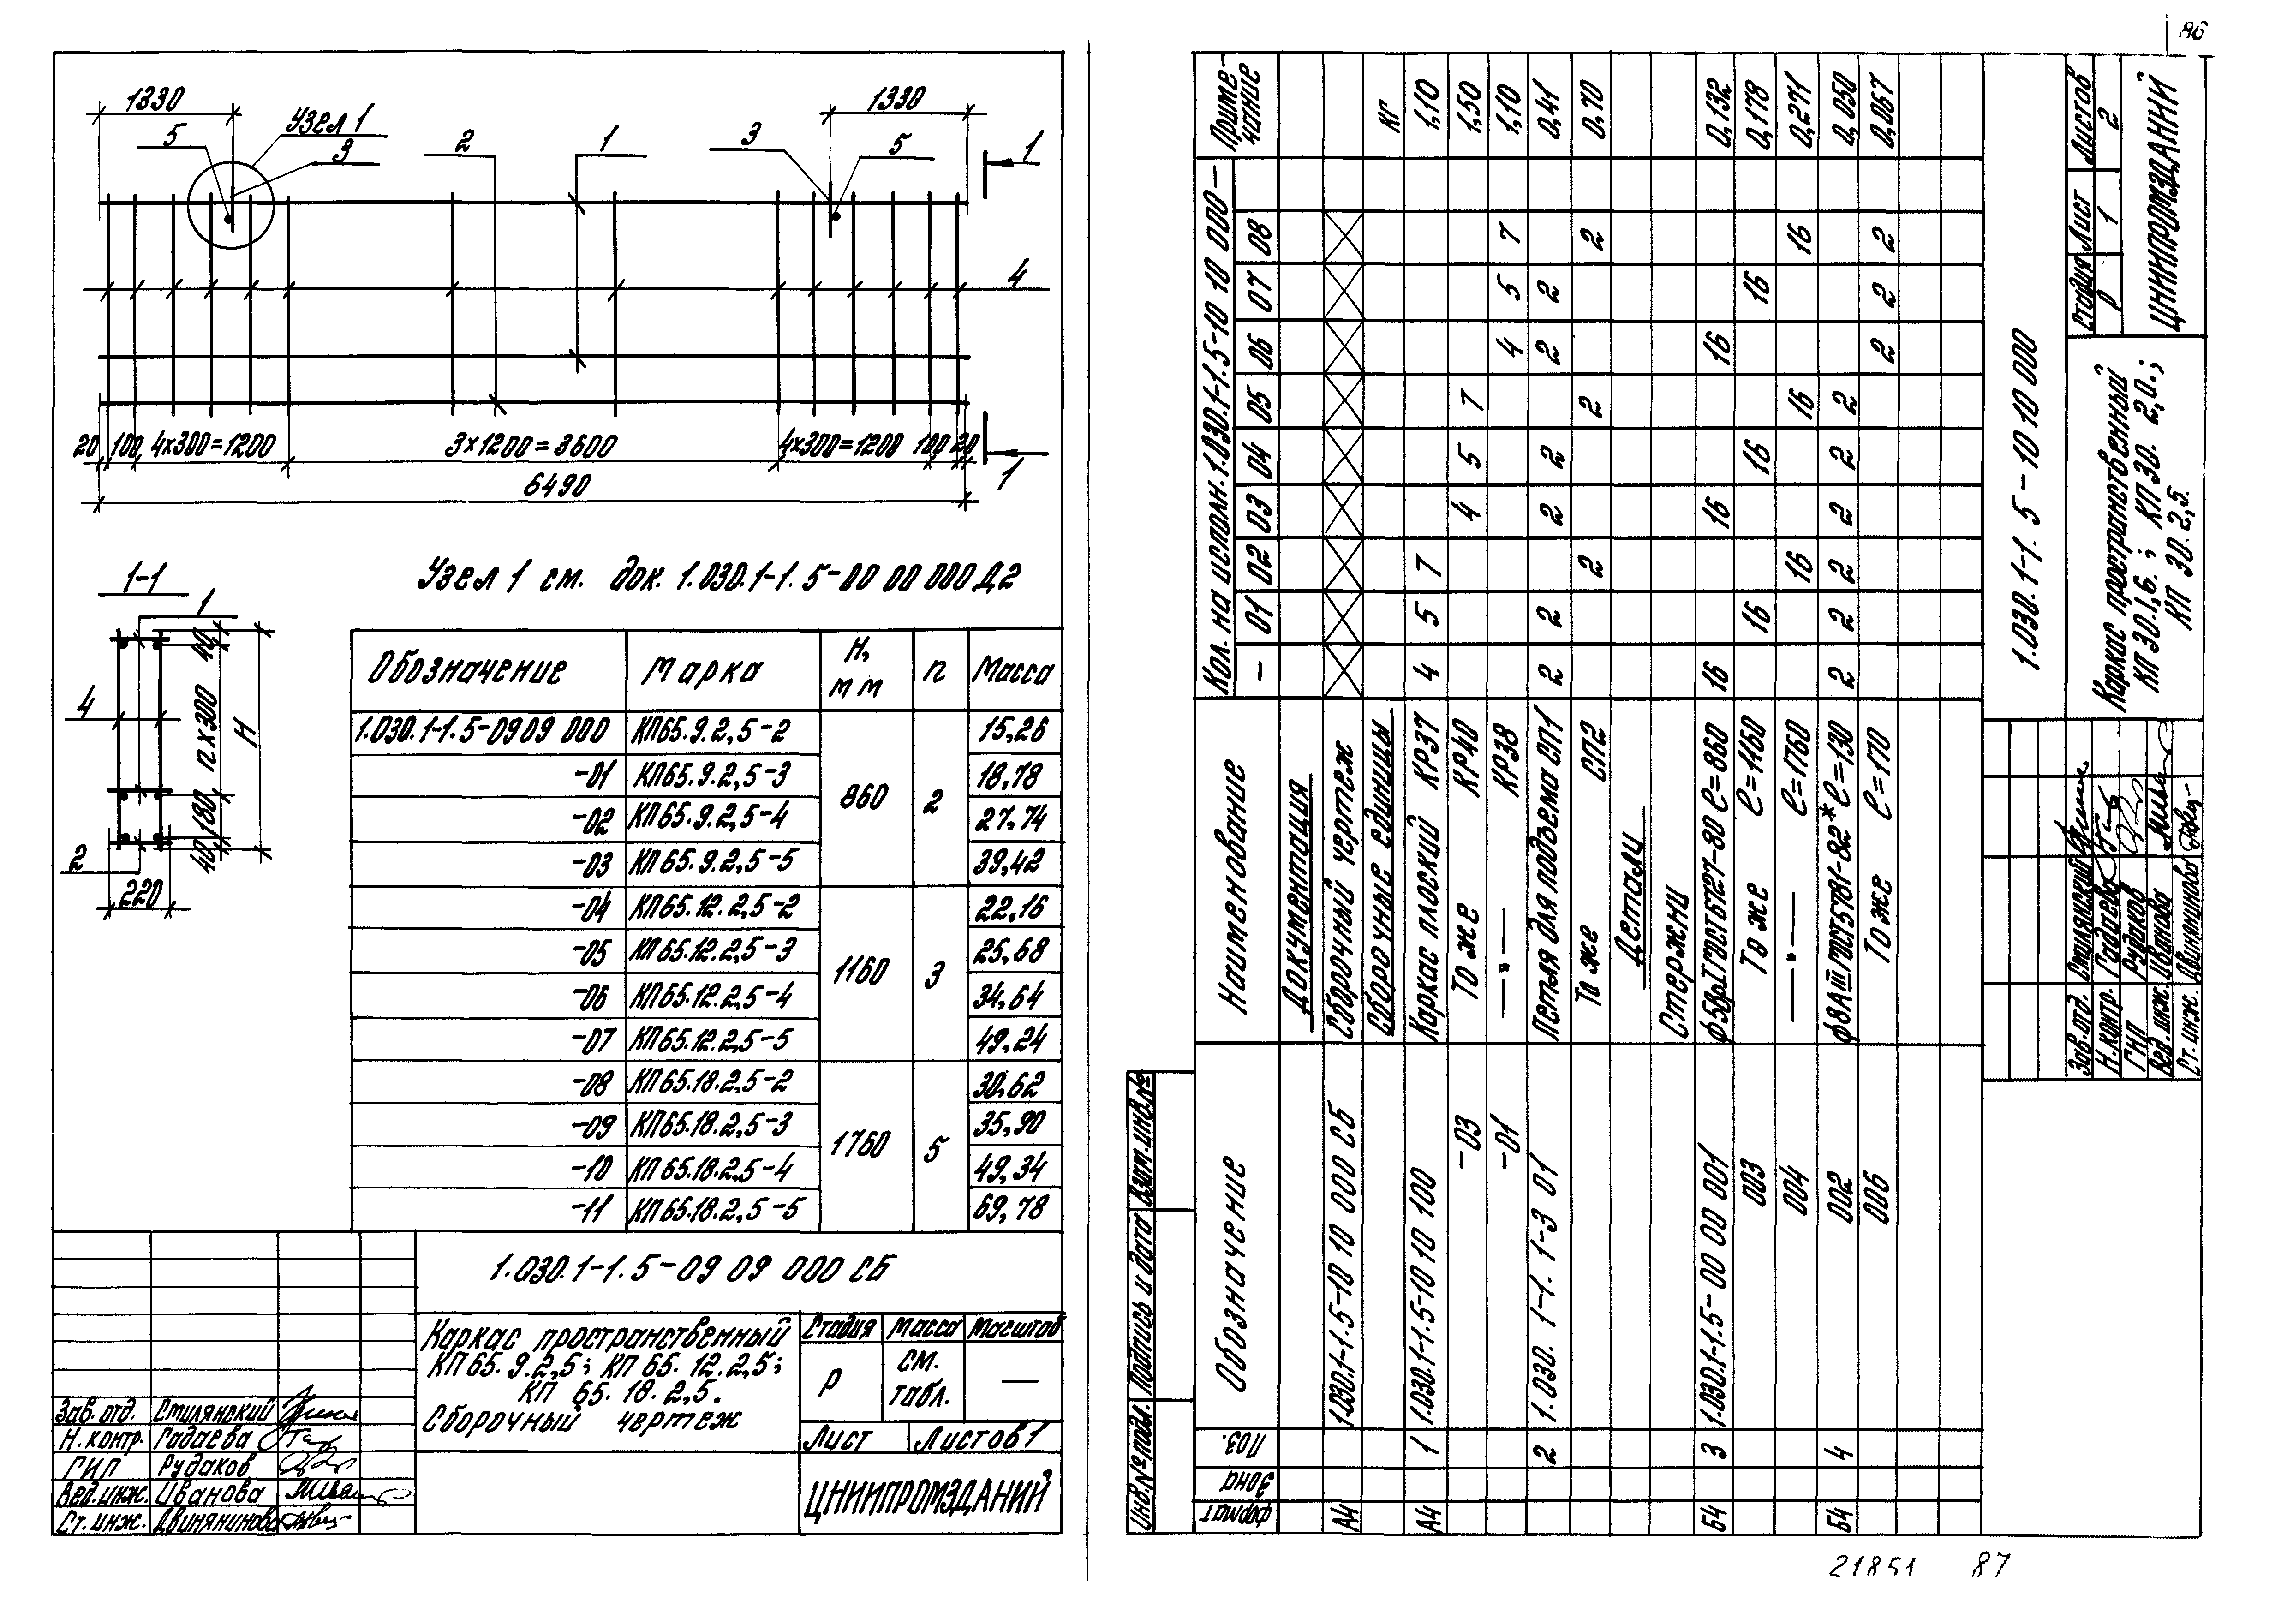 86
1330
1330
Узел 1
5
3
2
1
3
5
1
4
20 100 4×300=1200 3×1200=3600 4×300=1200 100 20
6490
1
Узел 1 см. док. 1.030.1-1.5-00 00 000 Д2
1-1
1
40
4
n×300
H
180
40
2
220
Обозначение Марка H, мм n Масса
1.030.1-1.5-09 09 000 КП65.9.2,5-2 860 2 15,26
-01 КП65.9.2,5-3 18,78
-02 КП65.9.2,5-4 27,74
-03 КП65.9.2,5-5 39,42
-04 КП65.12.2,5-2 1160 3 22,16
-05 КП65.12.2,5-3 25,68
-06 КП65.12.2,5-4 34,64
-07 КП65.12.2,5-5 49,24
-08 КП65.18.2,5-2 1760 5 30,62
-09 КП65.18.2,5-3 35,90
-10 КП65.18.2,5-4 49,34
-11 КП65.18.2,5-5 69,78
1.030.1-1.5-09 09 000 СБ
Каркас пространственный
КП65.9.2,5; КП 65.12.2,5;
КП 65.18.2,5.
Сборочный чертеж
Стадия Масса Масштаб
Р см. табл. —
Лист Листов 1
ЦНИИПРОМЗДАНИЙ
Зав. отд. Смилянский
Н. контр. Гадаева
ГИП Рудаков
Вед. инж. Иванова
Ст. инж. Двинянинова
Формат Зона Поз. Обозначение Наименование Кол. на исполн. 1.030.1-1.5-10 10 000- Примечание
- 01 02 03 04 05 06 07 08
Документация
А4 1.030.1-1.5-10 10 000 СБ Сборочный чертеж
Сборочные единицы кг
А4 1 1.030.1-1.5-10 10 100 Каркас плоский КР37 4 5 7 1,10
-03 То же КР40 4 5 7 1,50
-01 —"— КР38 4 5 7 1,10
2 1.030.1-1.1-3 01 Петля для подъема СП1 2 2 2 2 2 2 0,41
То же СП2 2 2 2 0,70
Детали
Стержни
Б4 3 1.030.1-1.5-00 00 001 ф5ВрI ГОСТ6727-80 ℓ=860 16 16 16 0,132
003 То же ℓ=1160 16 16 16 0,178
004 —"— ℓ=1760 16 16 16 0,271
Б4 4 002 ф8АIII ГОСТ5781-82* ℓ=130 2 2 2 2 2 2 0,050
006 То же ℓ=170 2 2 2 0,067
1.030.1-1.5-10 10 000
Каркас пространственный
КП 30.1,6.; КП 30.2,0.;
КП 30.2,5.
Стадия Лист Листов
Р 1 2
ЦНИИПРОМЗДАНИЙ
Зав. отд. Смилянский
Н. контр. Гадаева
ГИП Рудаков
Вед. инж. Иванова
Ст. инж. Двинянинова
Инв. № подл. Подпись и дата Взам. инв. №
21851 87